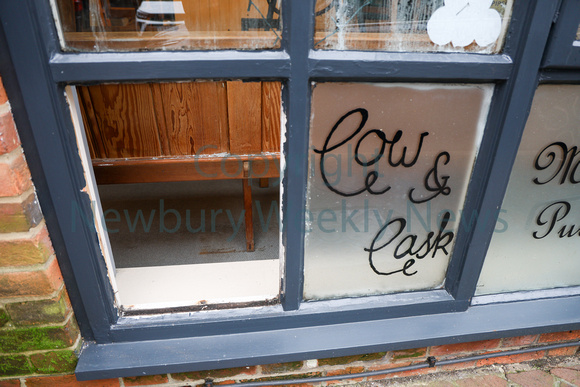 Cow
&
Cask
Copyright
Newbury Weekly News